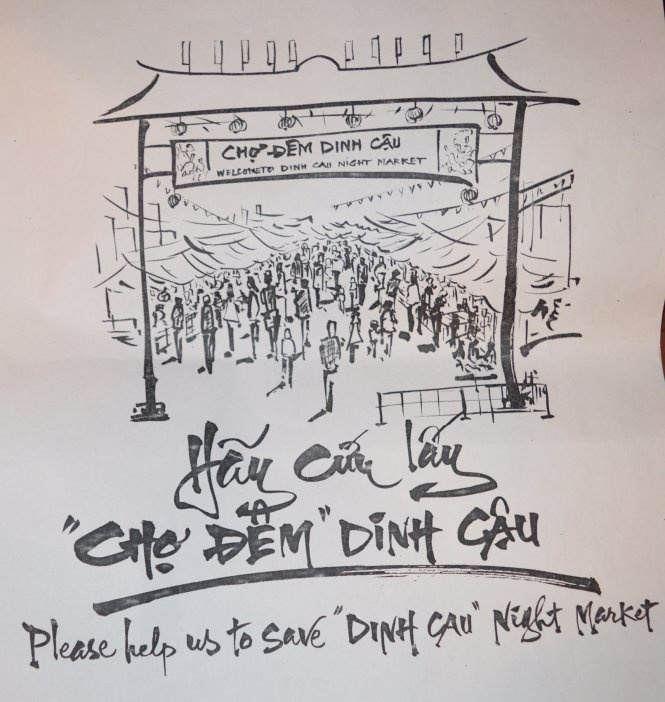 CHỢ ĐÊM DINH CẬU
WELCOME TO DINH CAU NIGHT MARKET
Hãy cứu lấy
"CHỢ ĐÊM" DINH CẬU
Please help us to save "DINH CAU" Night Market